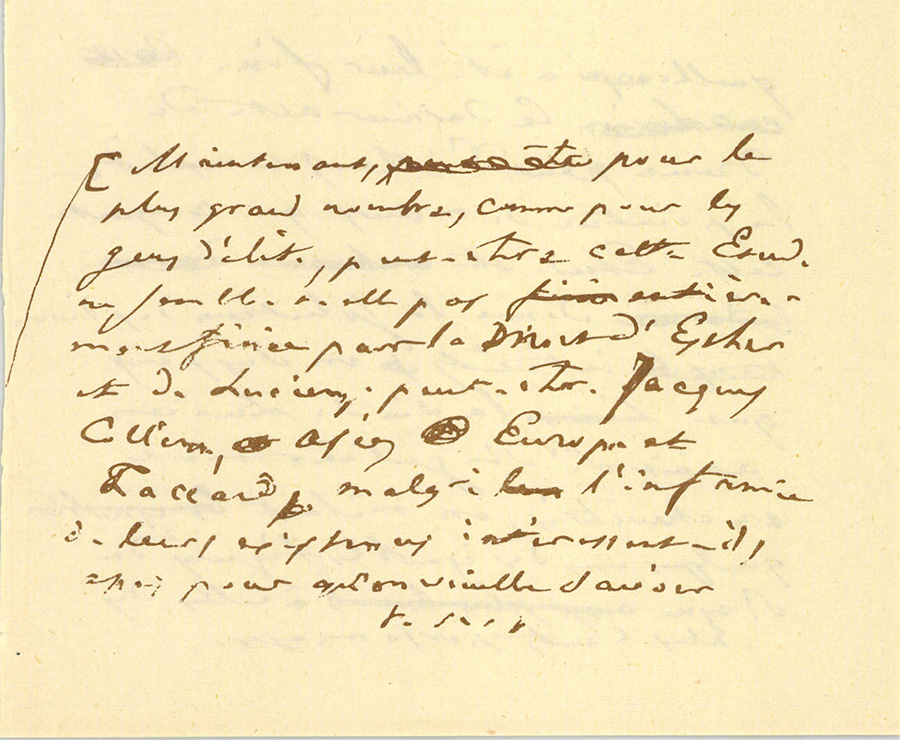 [ Maintenant, peut-être pour le
plus grand nombre, comme pour les
gens d'élite, peut-être cette Etude
ne semble-t-elle pas entière-
ment finie par la Mort d'Esther
et de Lucien; peut-être Jacques
Collin, Asie, Europe et
Paccard, malgré l'infamie
de leurs existences intéressent-ils
assez pour qu'on veuille savoir